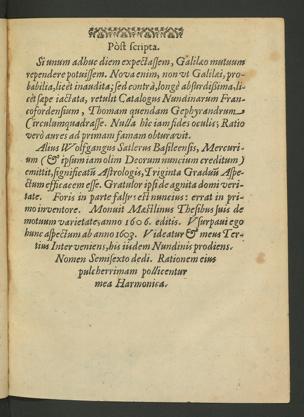 Pòst scripta.
Si unum adhuc diem expectassem, Galilæo mutuum
rependere potuissem. Nova enim, non vt Galilæi, pro-
babilia, licèt inaudita; sed contrà, longè absurdissima, li-
cèt sæpe iactata, retulit Catalogus Nundinarum Fran-
cofordensium, Thomam quendam Gephyrandrum
Circulum quadrasse. Nulla hîc iam fides oculis; Ratio
verò aures ad primam famam obturavit.
Alius Wolfgangus Satlerus Basileensis, Mercuri-
um (& ipsum iam olim Deorum nuncium creditum)
emittit, significatũ Astrologis, Triginta Graduũ Aspe-
ctum efficacem esse. Gratulor ipsi de agnita domi veri-
tate. Foris in parte falsus est nuncius: errat in pri-
mo inventore. Monuit Mæstlinus Thesibus suis de
motuum varietate, anno 1606. editis. Vsurpaui ego
hunc aspectum ab anno 1603. Videatur & meus Ter-
tius Interveniens, his iisdem Nundinis prodiens.
Nomen Semisexto dedi. Rationem eius
pulcherrimam pollicentur
mea Harmonica.